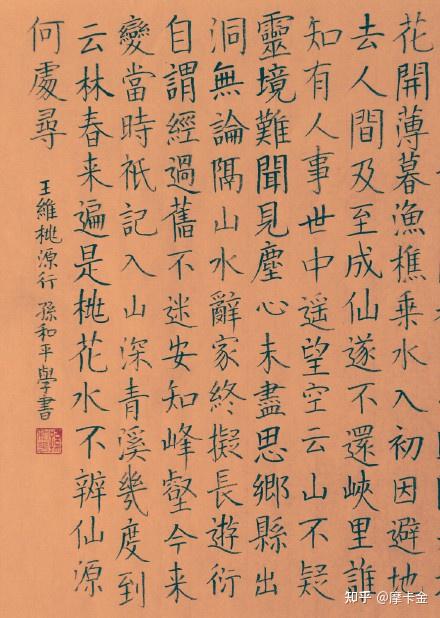 花開薄暮漁樵乗水入初因避地
去人間及至成仙遂不還峽里誰
知有人事世中遥望空云山不疑
靈境難聞見塵心未盡思鄉縣出
洞無論隔山水辭家終擬長遊衍
自謂經過舊不迷安知峰壑今来
變當時祇記入山深青溪幾度到
云林春来遍是桃花水不辨仙源
何處尋
王維桃源行 孫和平學書
知乎 @摩卡金